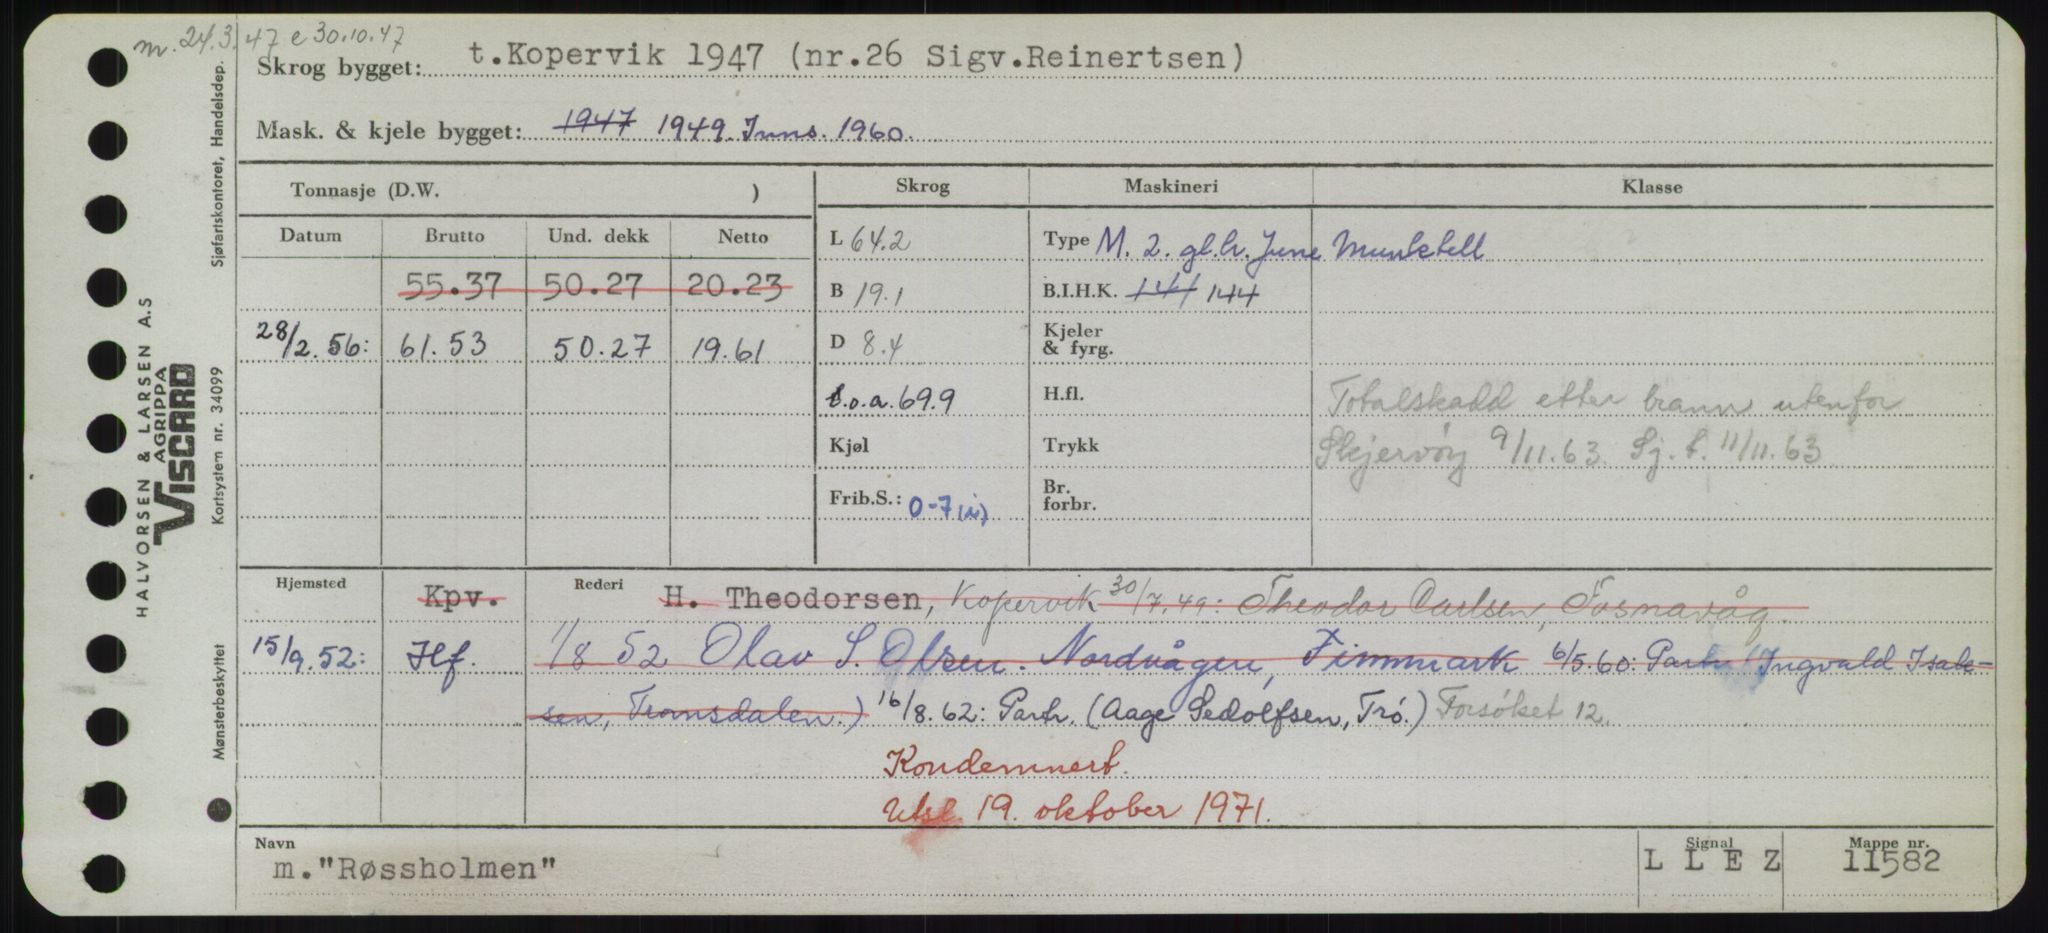 m. 24.3.47 e 30.10.47
Skrog bygget: t.Kopervik 1947 (nr.26 Sigv.Reinertsen)
Mask. & kjele bygget: 1947 1949. Inns. 1960.
Tonnasje (D.W. )
Skrog
Maskineri
Klasse
Datum
Brutto
Und. dekk
Netto
L 64.2
Type M. 2. gl.h. June Munktell
55.37 50.27 20.23
B 19.1
B.I.H.K. 141 144
28/2.56: 61.53 50.27 19.61
D 8.4
Kjeler
& fyrg.
L.o.a. 69.9
H.fl.
Totalskadd etter brann utenfor
Kjøl
Trykk
Skjervøy 9/11.63. Sj. t. 11/11.63
Frib.S.: 0-7 (i)
Br.
forbr.
Hjemsted
Kpv.
Rederi
H. Theodorsen, Kopervik 30/7.49: Theodor Carlsen, Fosnavåg.
15/9.52: Hf. 1/8 52 Olav S. Olsen. Nordvågen, Finnmark 6/5.60: Partr. (Ingvald Isak-
sen, Tromsdalen.) 16/8.62: Partr. (Aage Sedolfsen, Trø.) Forsøket 12.
Kondemnert.
Utsl. 19. oktober 1971.
Navn
m."Røssholmen"
Signal
L L E Z
Mappe nr.
11582
HALVORSEN & LARSEN A.S
AGRIPPA
VISCARD
Sjøfartskontoret, Handelsdep.
Kortsystem nr. 34099
Mønsterbeskyttet